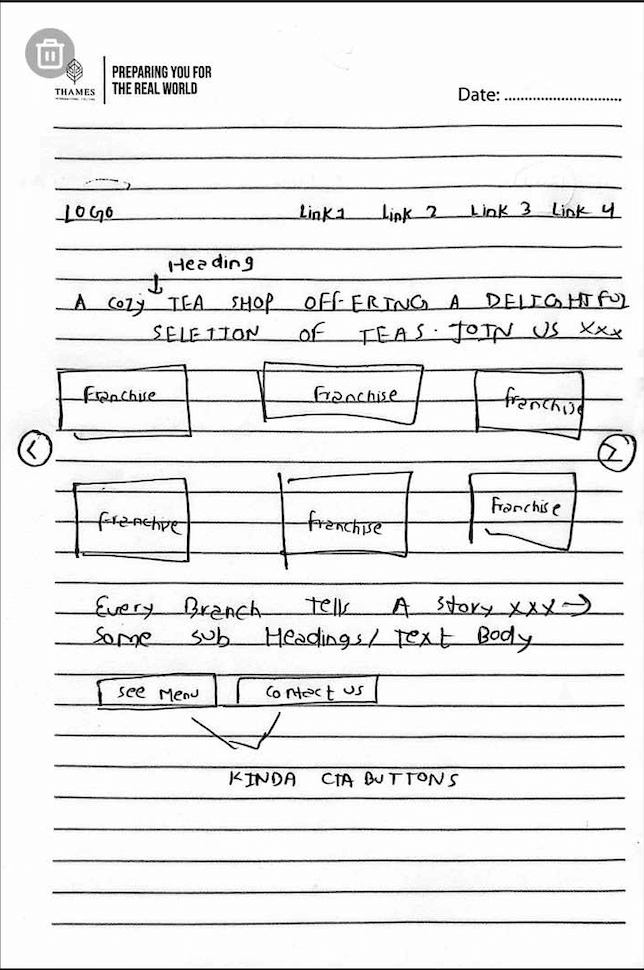 THAMES
PREPARING YOU FOR
THE REAL WORLD
Date: ..............................
LOGO Link1 Link 2 Link 3 Link 4
Heading
A cozy TEA SHOP OFFERING A DELIGHTFUL
SELETION OF TEAS. JOIN US xxx
Franchise Franchise Franchise
< >
Franchise Franchise Franchise
Every Branch Tells A Story xxx →
Some sub Headings/ Text Body
See Menu Contact us
KINDA CTA BUTTONS